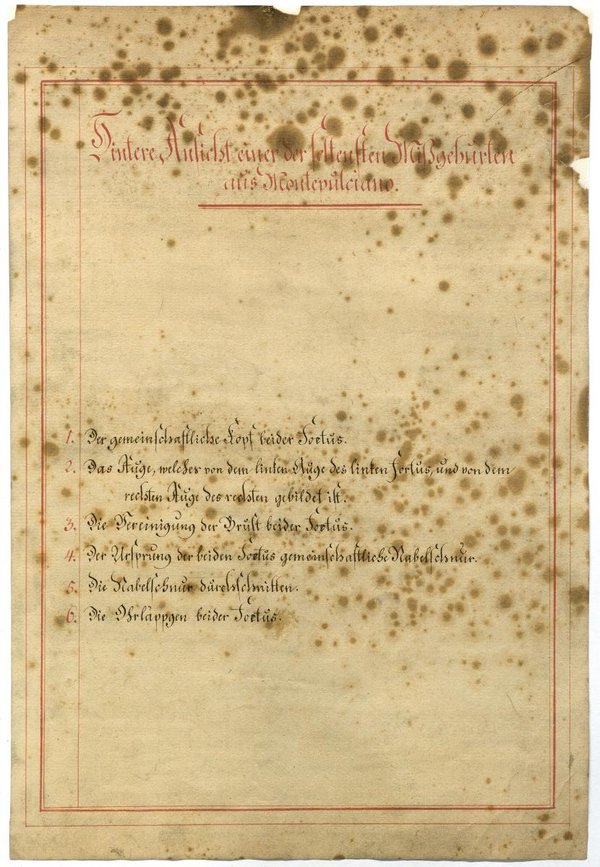 Hintere Ansicht einer der seltensten Mißgeburten
aus Montepulciano.
1. Der gemeinschaftliche Kopf beider Foetus.
2. Das Auge, welcher von dem linken Auge des linken Foetus, und von dem
rechten Auge des rechten gebildet ist.
3. Die Vereinigung der Brust beider Foetus.
4. Der Ursprung der beiden Foetus gemeinschaftliche Nabelschnur.
5. Die Nabelschnur durchschnitten.
6. Die Ohrläppgen beider Foetus.